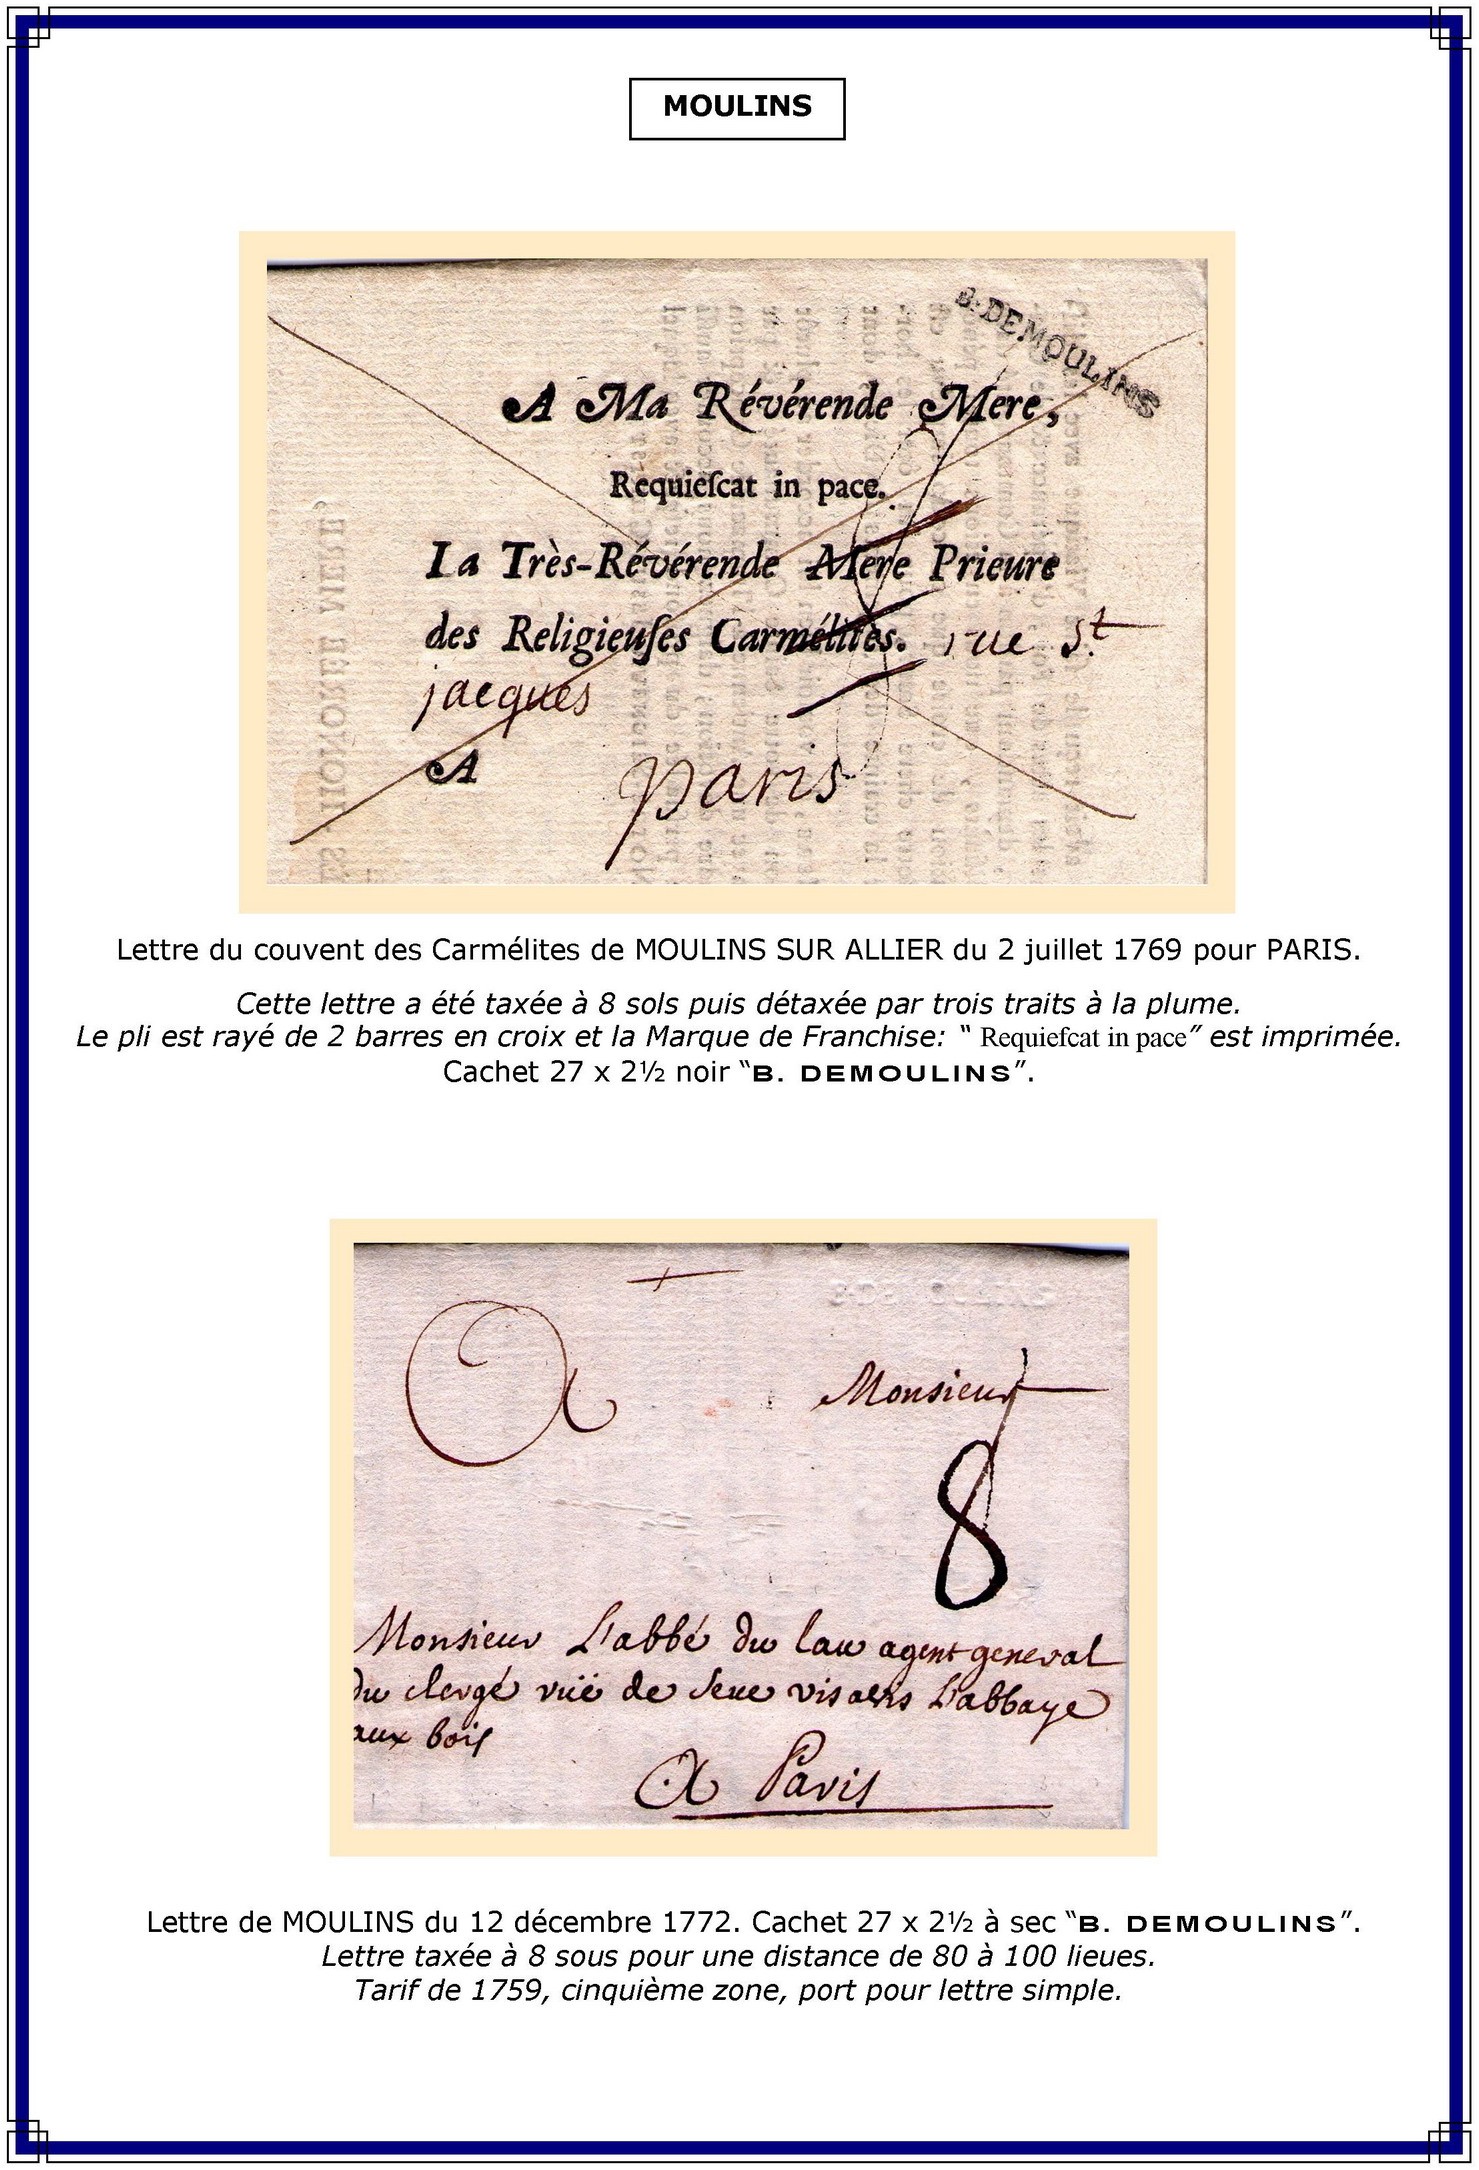 MOULINS
B. DEMOULINS
A Ma Révérende Mere,
Requieſcat in pace.
La Très-Révérende Mere Prieure
des Religieuſes Carmélites. rue St
jacques
A paris
Lettre du couvent des Carmélites de MOULINS SUR ALLIER du 2 juillet 1769 pour PARIS.
Cette lettre a été taxée à 8 sols puis détaxée par trois traits à la plume.
Le pli est rayé de 2 barres en croix et la Marque de Franchise: “ Requiefcat in pace” est imprimée.
Cachet 27 x 2½ noir “B. DEMOULINS”.
A Monsieur
8
Monsieur L'abbé du lau agent general
du clergé rüe de seue vis aens L'abbaye
aux bois
A Paris
Lettre de MOULINS du 12 décembre 1772. Cachet 27 x 2½ à sec “B. DEMOULINS”.
Lettre taxée à 8 sous pour une distance de 80 à 100 lieues.
Tarif de 1759, cinquième zone, port pour lettre simple.